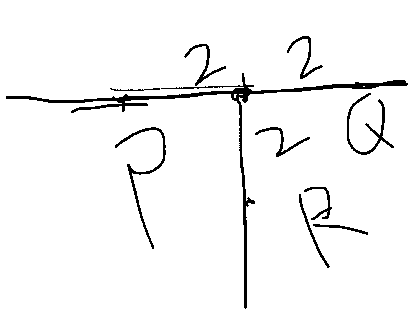 2 2
P 2 Q
R